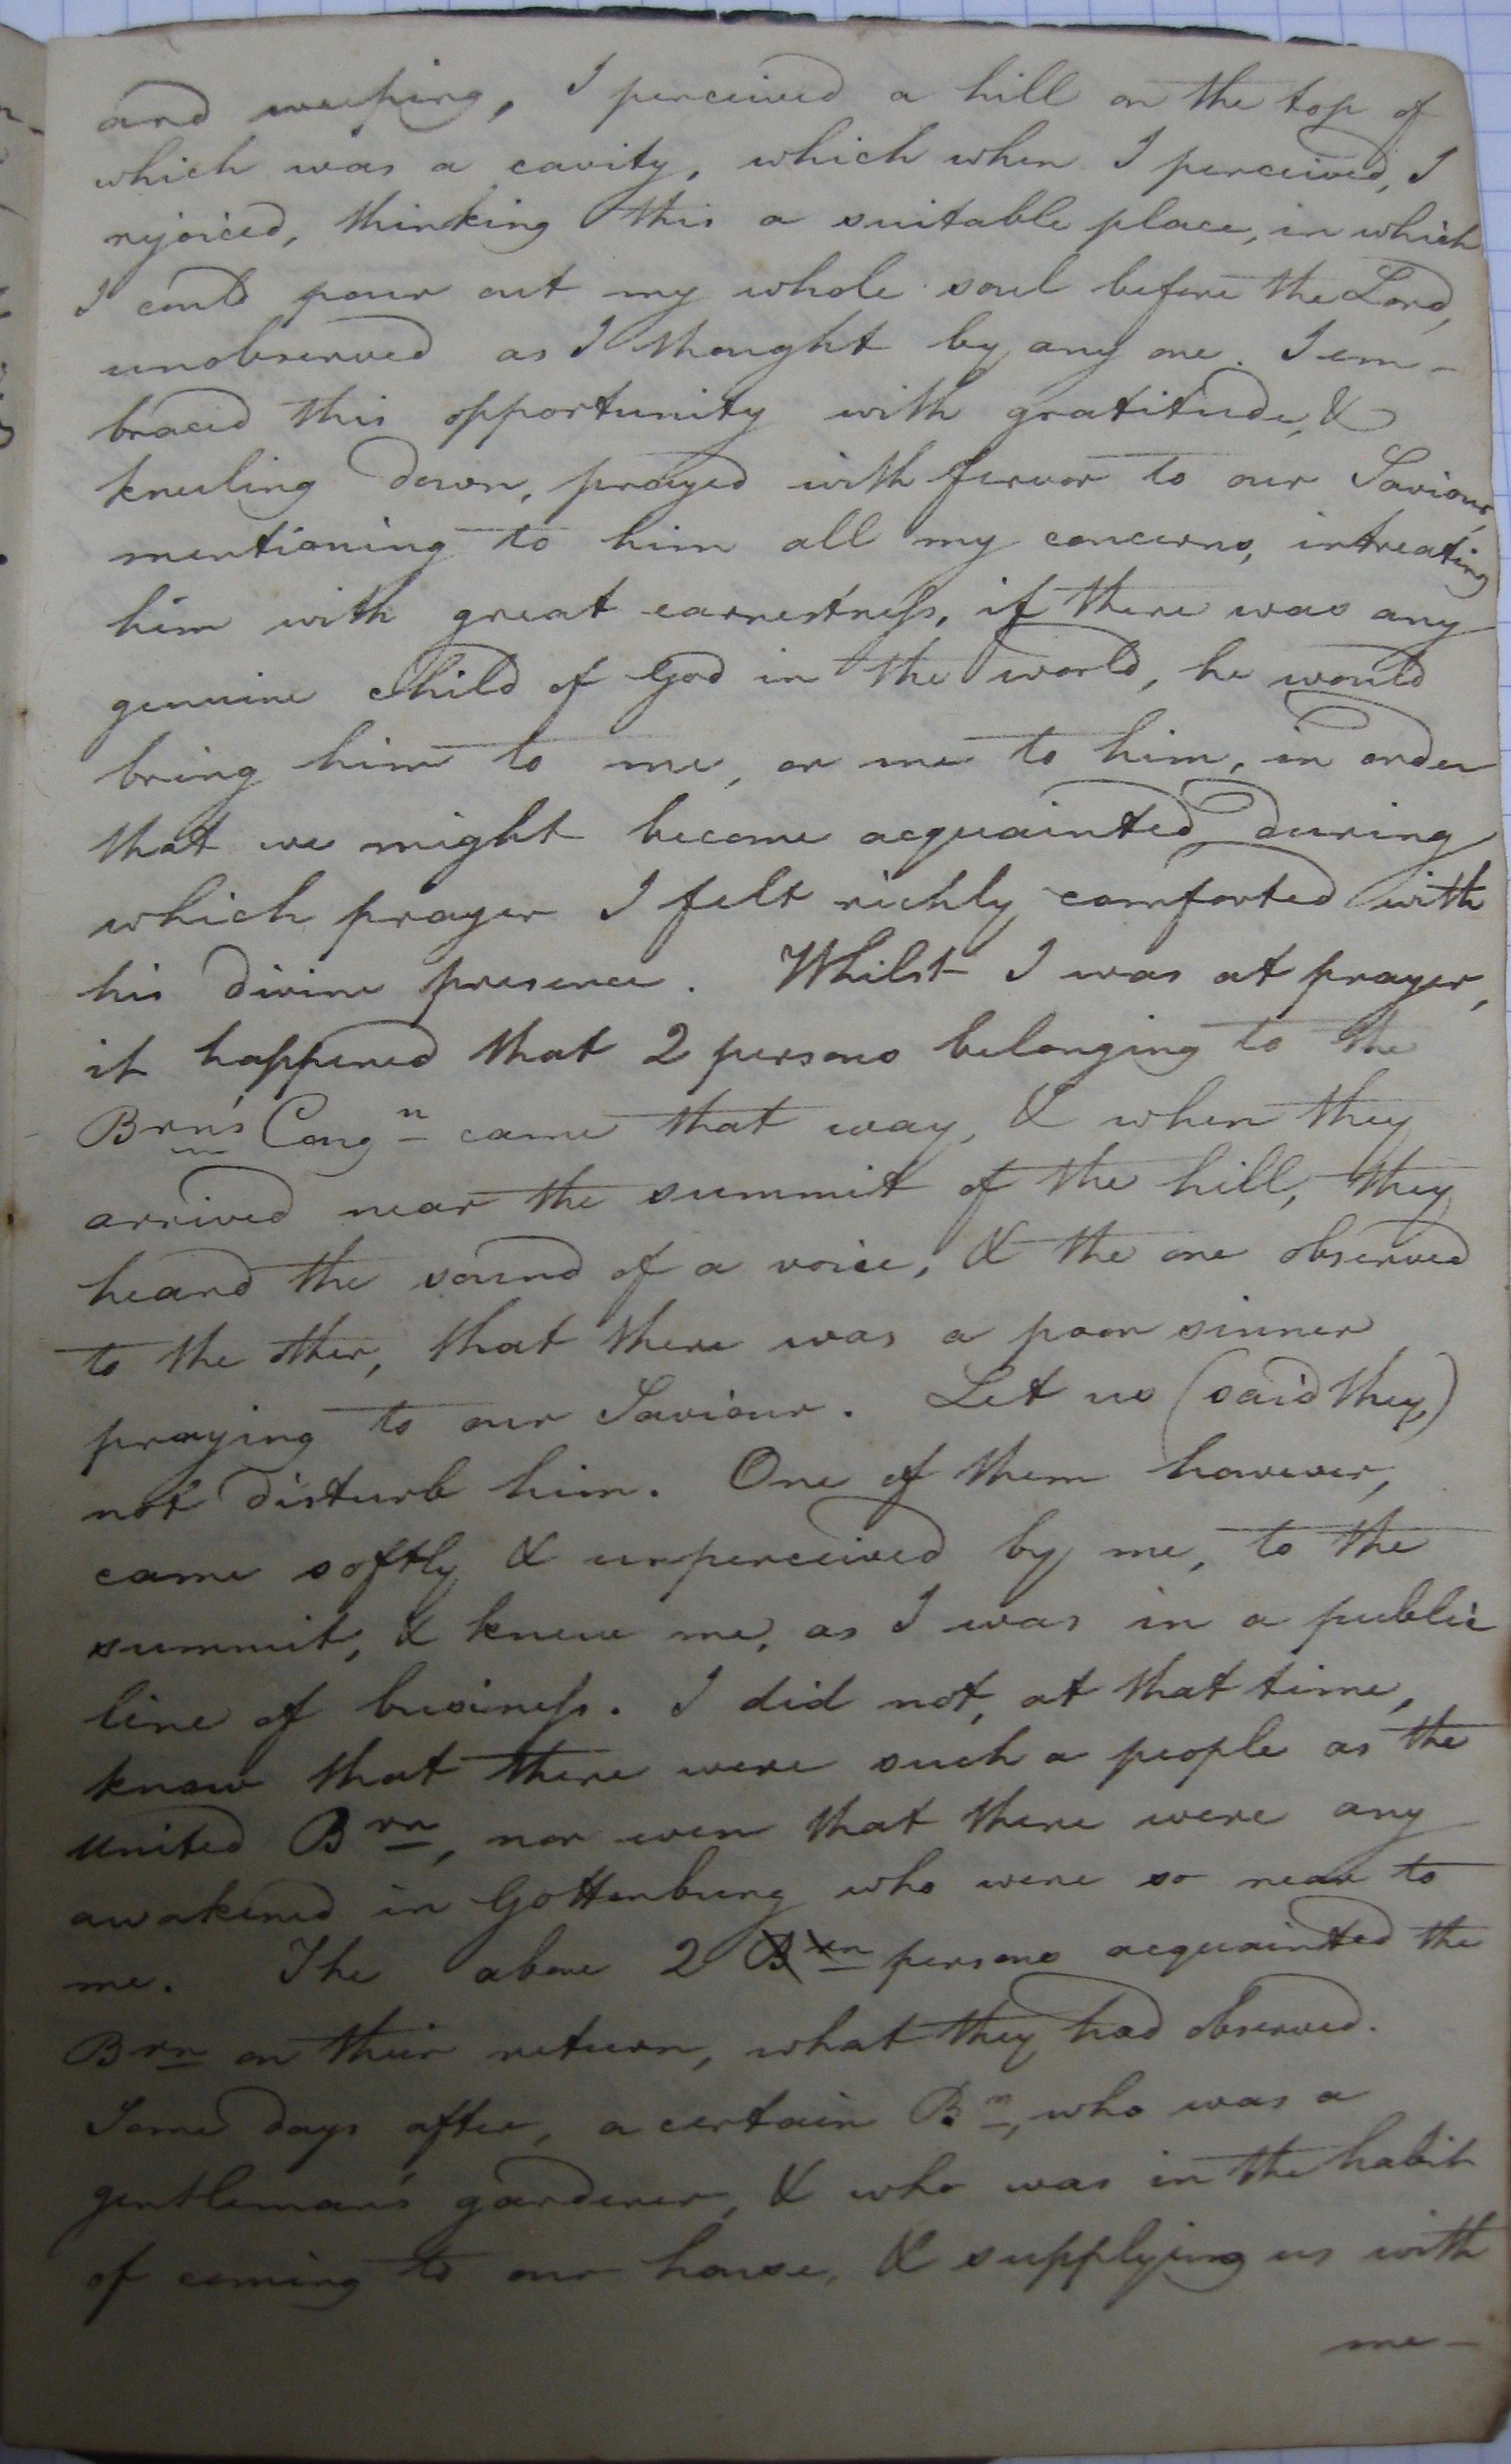 and weeping, I perceived a hill on the top of
which was a cavity, which when I perceived, I
rejoiced, thinking this a suitable place, in which
I could pour out my whole soul before the Lord,
unobserved as I thought by any one. I em-
braced this opportunity with gratitude, &
kneeling down, prayed with fervor to our Saviour,
mentioning to him all my concerns, intreating
him with great earnestneſs, if there was any
genuine child of God in the world, he would
bring him to me, or me to him, in order
that we might become acquainted, during
which prayer I felt richly comforted with
his divine presence. Whilst I was at prayer,
it happened that 2 persons belonging to the
Brn's Congn came that way, & when they
arrived near the summit of the hill, they
heard the sound of a voice, & the one observed
to the other, that there was a poor sinner
praying to our Saviour. Let us (said they,)
not disturb him. One of them however,
came softly & unperceived by me, to the
summit, & knew me, as I was in a public
line of busineſs. I did not, at that time,
know that there were such a people as the
united Brn, nor even that there were any
awakened in Gottenburg who were so near to
me. The above 2 Brn persons acquainted the
Brn on their return, what they had observed.
Some days after, a certain Br, who was a
gentleman's gardener, & who was in the habit
of coming to our house, & supplying us with
me-